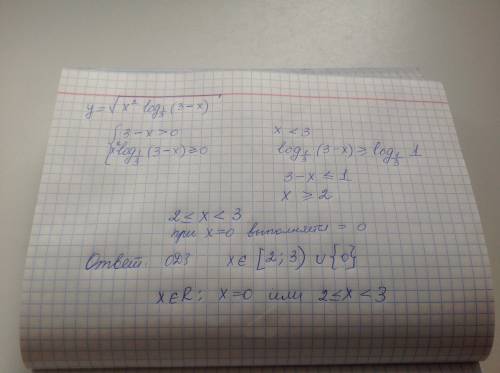 y = √(x² log_{1/3} (3-x))
{ 3-x > 0
x² log_{1/3} (3-x) ≥ 0
x < 3
log_{1/3} (3-x) ≥ log_{1/3} 1
3-x ≤ 1
x ≥ 2
2 ≤ x < 3
при x=0 выполняется = 0
Ответ: ОДЗ x ∈ [2; 3) ∪ {0}
x ∈ R: x=0 или 2 ≤ x < 3